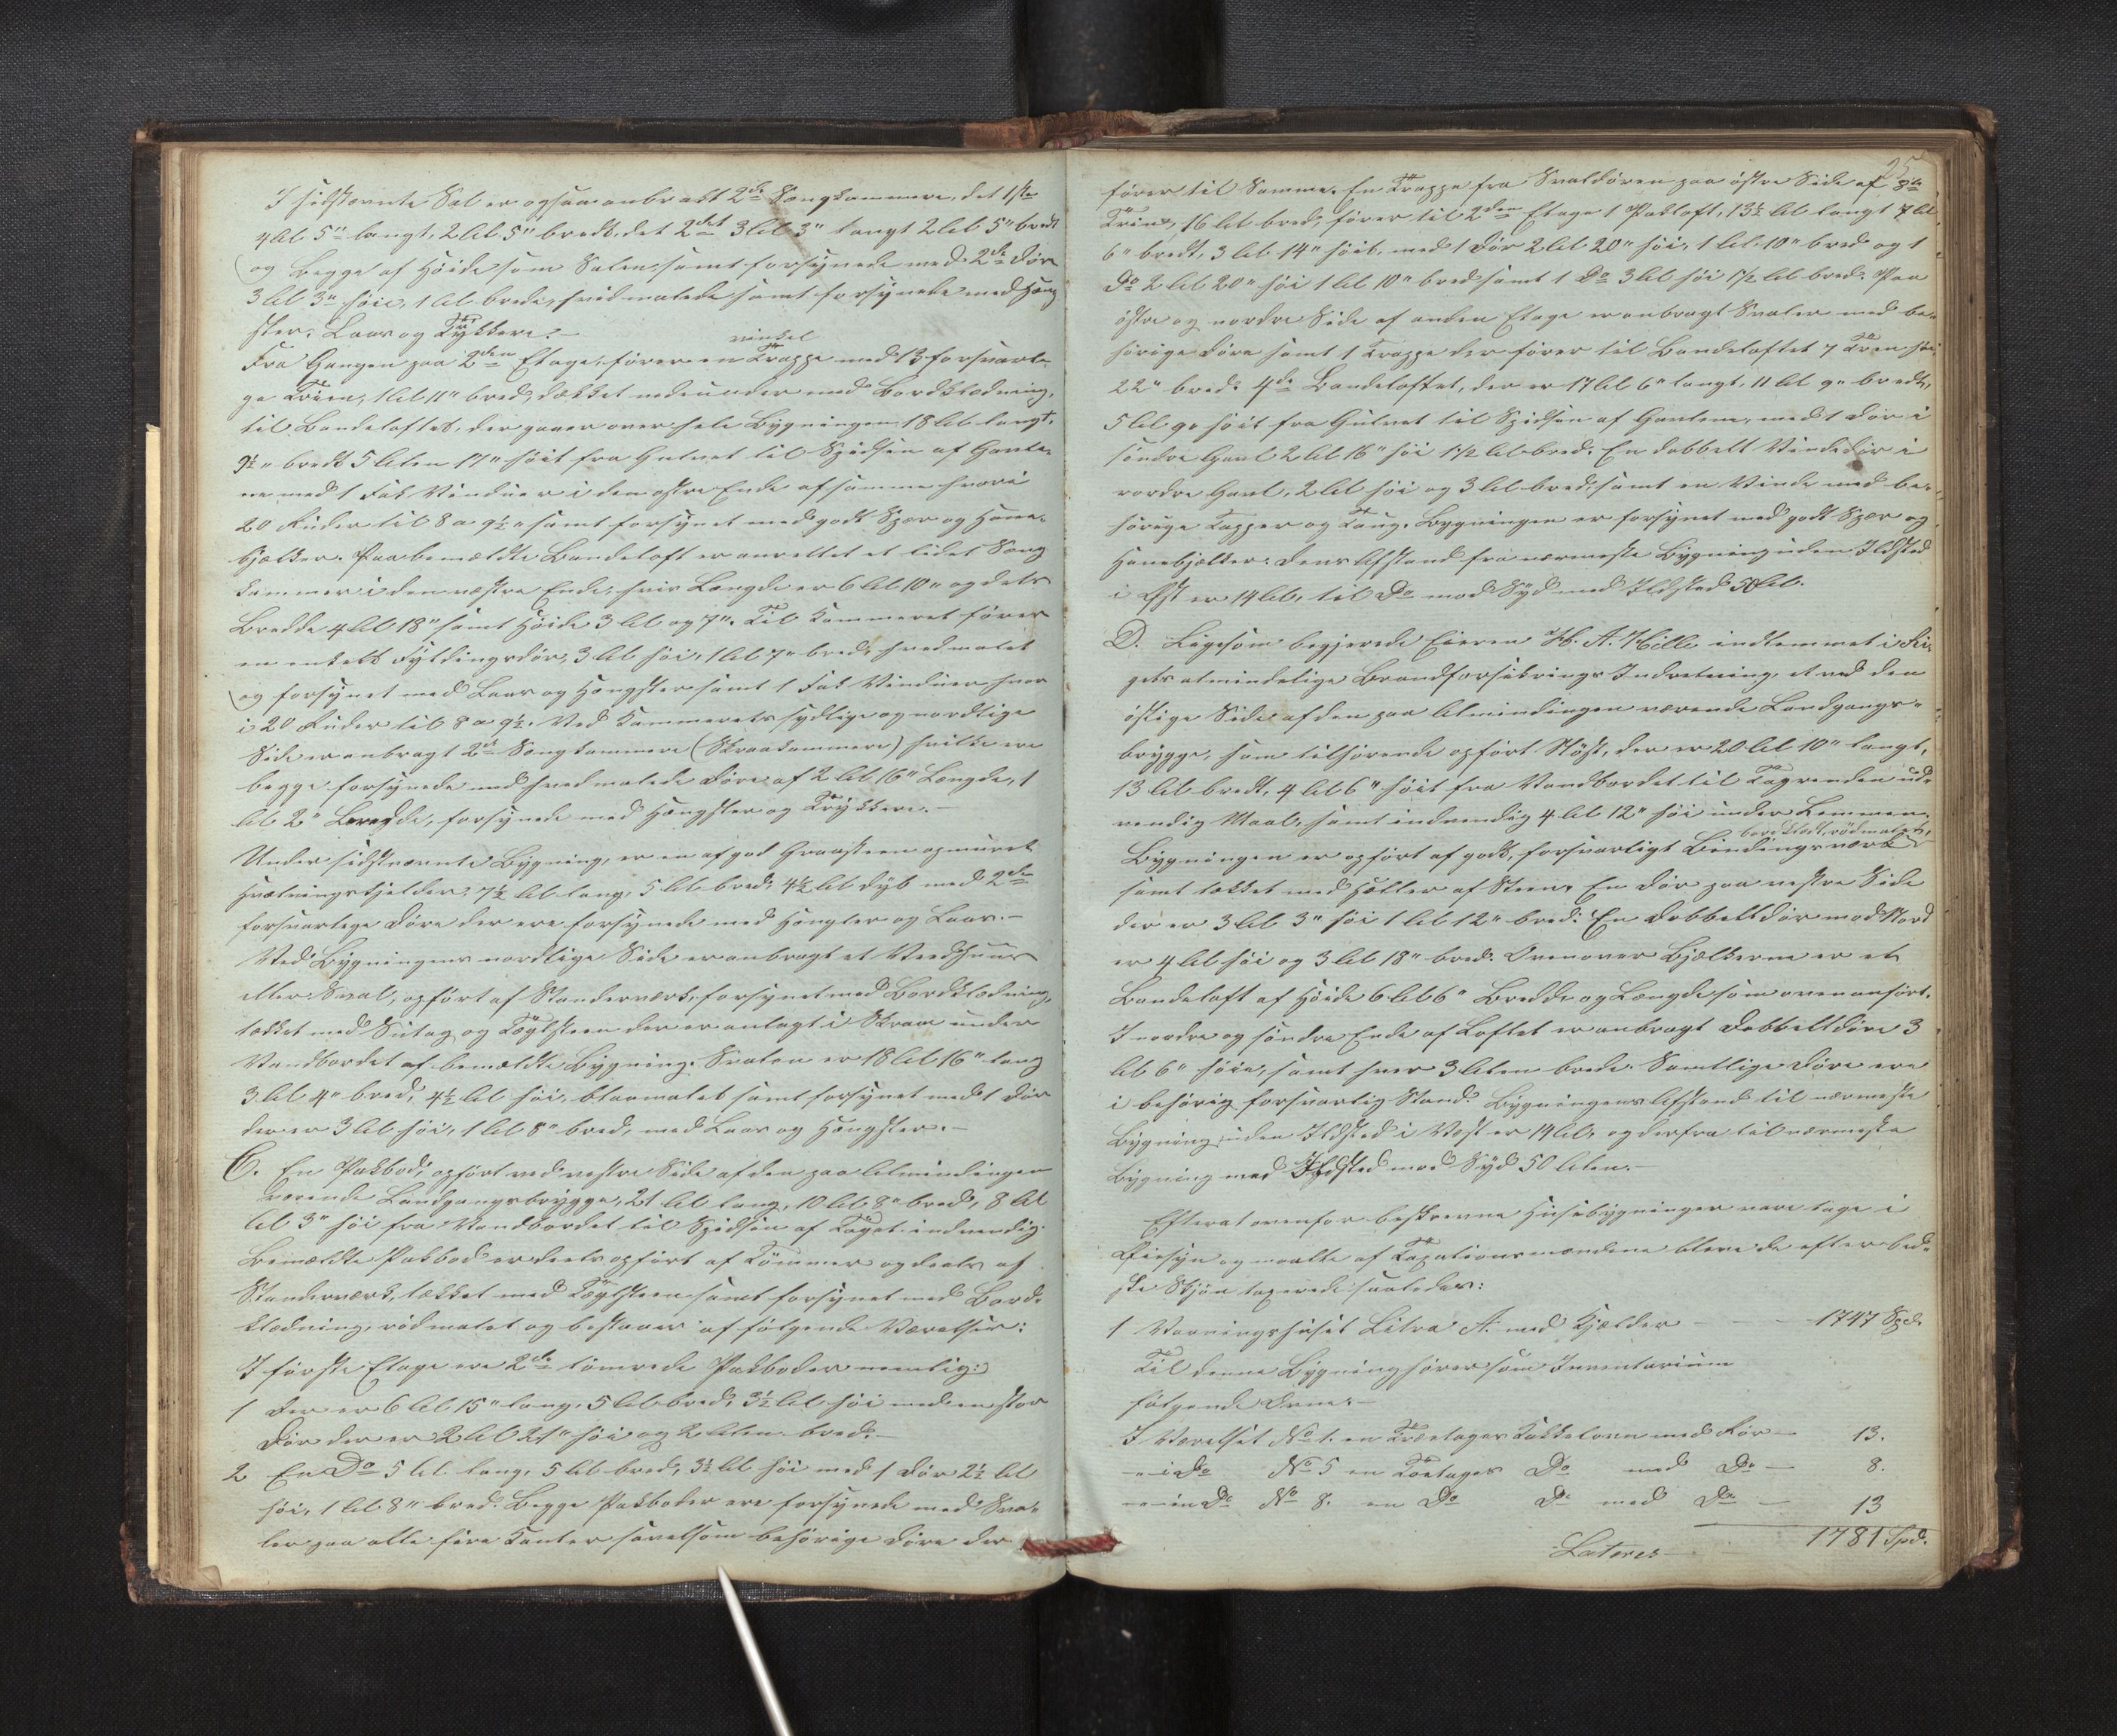 I sidstnævnte Sal er ogsaa anbragt 2de Sængkammere, det 1ste
4 Al 5" langt, 2 Al 5" bredt, det 2det 3 Al 3" langt 2 Al 5" bredt
og begge af Høide som Salen, samt forsynede med 2de Døre
3 Al 3" høie, 1 Al brede, hvidmalede samt forsynede med Hæng
sler, Laas og Trykkere.—
vinkel
Fra Gangen paa 2den Etage, fører en Trappe med 13 forsvarli-
ge Trin, 1 Al 11" bred, dækket nedenunder med Bordklædning,
til Bandeloftet, der gaaer over hele Bygningen 18 Al langt,
9½ " bredt 5 Alen 17" høit fra Gulvet til Spidsen af Gavle-
ne med 1 Fak Vinduer i den østre Ende af samme hvori
20 Ruder til 8 a 9½ " samt forsynet med godt Spær og Hane-
bjælker. Paa bemældte Bandeloft er anrettet et lidet Sæng
kammer i den væstre Ende, hvis Længde er 6 Al 10" og dets
Bredde 4 Al 18" samt Høide 3 Al og 7". Til Kammeret fører
en enkelt Fyldingsdør, 3 Al høi, 1 Al 7" bred, hvidmalet
og forsynet med Laas og Hængsler samt 1 Fak Vinduer hvor
i 20 Ruder til 8 a 9½. Ved Kammerets sydlige og nordlige
Side er anbragt 2de Sængkammere (Skraakammere) hvilke ere
begge forsynede med hvidmalede Døre af 2 Al 16" Længde, 1
Al 2" Bredde, forsynede med Hængsler og Trykkere.—
Under sidstnævnte Bygning, er en af god Graasteen opmuret
Hvælvingskjelder, 7½ Al lang, 5 Al bred, 4½ Al dyb med 2de
forsvarlige Døre der ere forsynede med Hængsler og Laas.—
Ved Bygningens nordlige Side er anbragt et Veedhuus
eller Sval, opført af Standerværk, forsynet med Bordklædning,
tækket med Sutag og Tagsteen der er anlagt i Skraa under
Vandbordet af bemældte Bygning. Svalen er 18 Al 16" lang
3 Al 4" bred, 4½ Al høi, blaamalet samt forsynet med 1 Dør
der er 3 Al høi, 1 Al 8" bred, med Laas og Hængsler.—
C. En Pakbod, opført ved vestre Side af den paa Almindingen
værende Landgangsbrygge, 21 Al lang, 10 Al 8" bred, 8 Al
Al 3" høi fra Vandbordet til Spidsen af Taget indvendig.
Bemældte Pakbod er deels opført af Tømmer og deels af
Standerværk, tækket med Tagsteen samt forsynet med Bord-
klædning, rødmalet og bestaaer af følgende Værelser:
I første Etage ere 2de tømrede Pakboder nemlig:
1 Der er 6 Al 15" lang, 5 Al bred, 3½ Al høi med en stor
Dør der er 2 Al 21" høi og 2 Alen bred.—
2 En Do 5 Al lang, 5 Al bred, 3½ Al høi med 1 Dør 2½ Al
høi, 1 Al 8" bred. Begge Pakboder ere forsynede med Sva-
ler paa alle fire Kanter saavelsom behørige Døre der
25
fører til Samme. En Trappe fra Svaldøren paa østre Side af
Trin, 16 Al bred, fører til 2den Etage 1 Pakloft, 13½ Al langt 7 Al
6" bredt, 3 Al 14" høit, med 1 Dør 2 Al 20" høi, 1 Al 10" bred og 1
Do 2 Al 20" høi 1 Al 10" bred samt 1 Do 3 Al høi 1½ Al bred. Paa
østre og nordre Side af anden Etage er anbragt Svaler med be-
hørige Døre samt 1 Trappe der fører til Bandeloftet 7 Trin høi
22" bred. 4de Bandeloftet, der er 17 Al 6" langt, 11 Al 9" bredt,
5 Al 9" høit fra Gulvet til Spidsen af Gavlene, med 1 Dør i
søndre Gavl 2 Al 16" høi 1½ Al bred. En dobbelt Vindedør i
nordre Gavl, 2 Al høi og 3 Al bred, samt en Vinde med be-
hørige Tapper og Toug. Bygningen er forsynet med godt Spær og
Hanebjælker. Dens Afstand fra nærmeste Bygning uden Ildsted
i Øst er 14 Al, til Do mod Syd med Ildsted 50 Al.
D. Ligesom begjerede Eieren H. A. Hille indlemmet i Ri-
gets almindelige Brandforsikrings Indretning, et ved den
østlige Side af den paa Almindingen værende Landgangs-
brygge, ham tilhørende opført Nøst, der er 20 Al 10" langt,
13 Al bredt, 4 Al 6" høit fra Vandbordet til Tagrenden ud-
vendig Maal, samt indvendig 4 Al 12" høi under Lemmen.
bordklædt, rødmalet,
Bygningen er opført af godt, forsvarligt Bindingsværk
samt tækket med Heller af Steen. En Dør paa vestre Side
der er 3 Al 3" høi 1 Al 12" bred. En Dobbeltdør mod Nord
er 4 Al høi og 3 Al 18" bred. Ovenover Bjælkerne er et
Bandeloft af Høide 6 Al 6" Bredde og Længde som ovenanført.
I nordre og søndre Ende af Loftet er anbragt Dobbeltdøre 3
Al 6" høie, samt hver 3 Alen brede. Samtlige Døre ere
i behørig forsvarlig Stand. Bygningens Afstand til nærmeste
Bygning uden Ildsted i Vest er 14 Al, og derfra til nærmeste
Bygning med Ildsted mod Syd 50 Alen.—
Efterat ovenfor beskrevne Husebygninger vare tage i
Øiesyn og maalte af Taxationsmændene bleve de efter bed-
ste Skjøn taxerede saaledes:
1 Vaaningshuset Litra A. med Kjelder - - - 1747 Spd.
Til denne Bygning hører som Inventarium
følgende Ovne:—
I Værelset No 1. en Treetages Kakkelovn med Rør — 13.
— i Do No 5 en Toetages Do med Do — 8.
— i Do No 8. en Do Do med Do — 13
Lateres 1781 Spd.